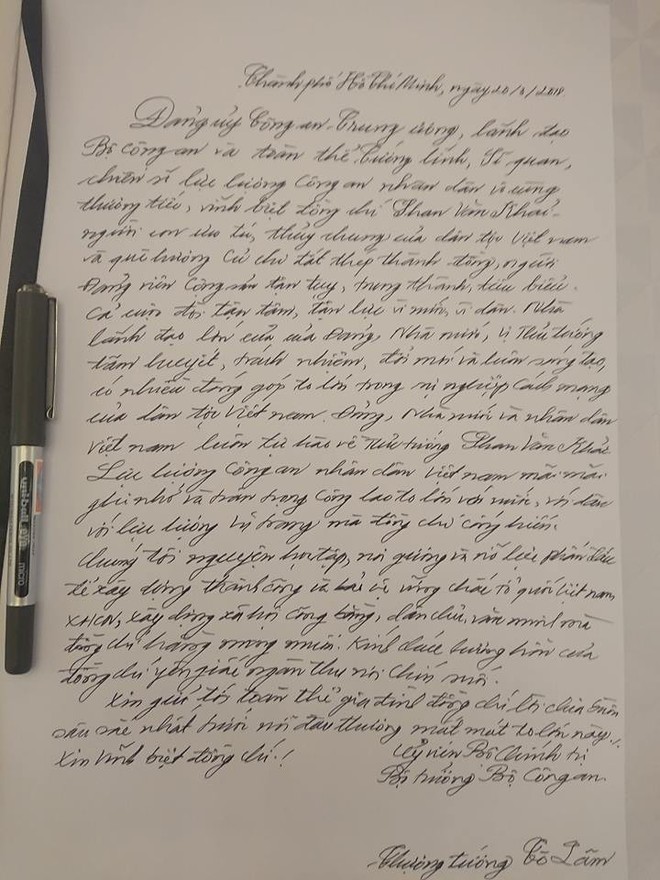 Thành phố Hồ Chí Minh, ngày 20/3/2018
Đảng ủy Công an Trung ương, lãnh đạo
Bộ Công an và toàn thể tướng lĩnh, Sĩ quan,
chiến sĩ lực lượng Công an nhân dân vô cùng
thương tiếc, vĩnh biệt đồng chí Phan Văn Khải -
người con ưu tú, thủy chung của dân tộc Việt nam
và quê hương Củ chi đất thép thành đồng, người
Đảng viên Cộng sản tận tụy, trung thành, tiêu biểu.
Cả cuộc đời tận tâm, tận lực vì nước, vì dân. Nhà
lãnh đạo lớn của của Đảng, Nhà nước, vị Thủ tướng
tâm huyết, trách nhiệm, đổi mới và luôn sáng tạo,
có nhiều đóng góp to lớn trong sự nghiệp Cách mạng
của dân tộc Việt nam. Đảng, Nhà nước và nhân dân
Việt nam luôn tự hào về Thủ tướng Phan Văn Khải.
Lực lượng Công an nhân dân Việt nam mãi mãi
ghi nhớ và trân trọng Công lao to lớn với nước, với dân
với lực lượng vũ trang mà đồng chí cống hiến.
Chúng tôi nguyện học tập, noi gương và nỗ lực phấn đấu
để xây dựng thành công và bảo vệ vững chắc Tổ quốc Việt nam
XHCN, xây dựng xã hội công bằng, dân chủ, văn minh mà
đồng chí hằng mong muốn. Kính chúc hương hồn của
đồng chí yên giấc ngàn thu nơi chín suối.
Xin gửi tới toàn thể gia đình đồng chí lời chia buồn
sâu sắc nhất trước nỗi đau thương mất mát to lớn này!
Xin Vĩnh biệt đồng chí!
Ủy viên Bộ Chính trị
Bộ trưởng Bộ Công an
Thượng tướng Tô Lâm
uni-ball eye
micro